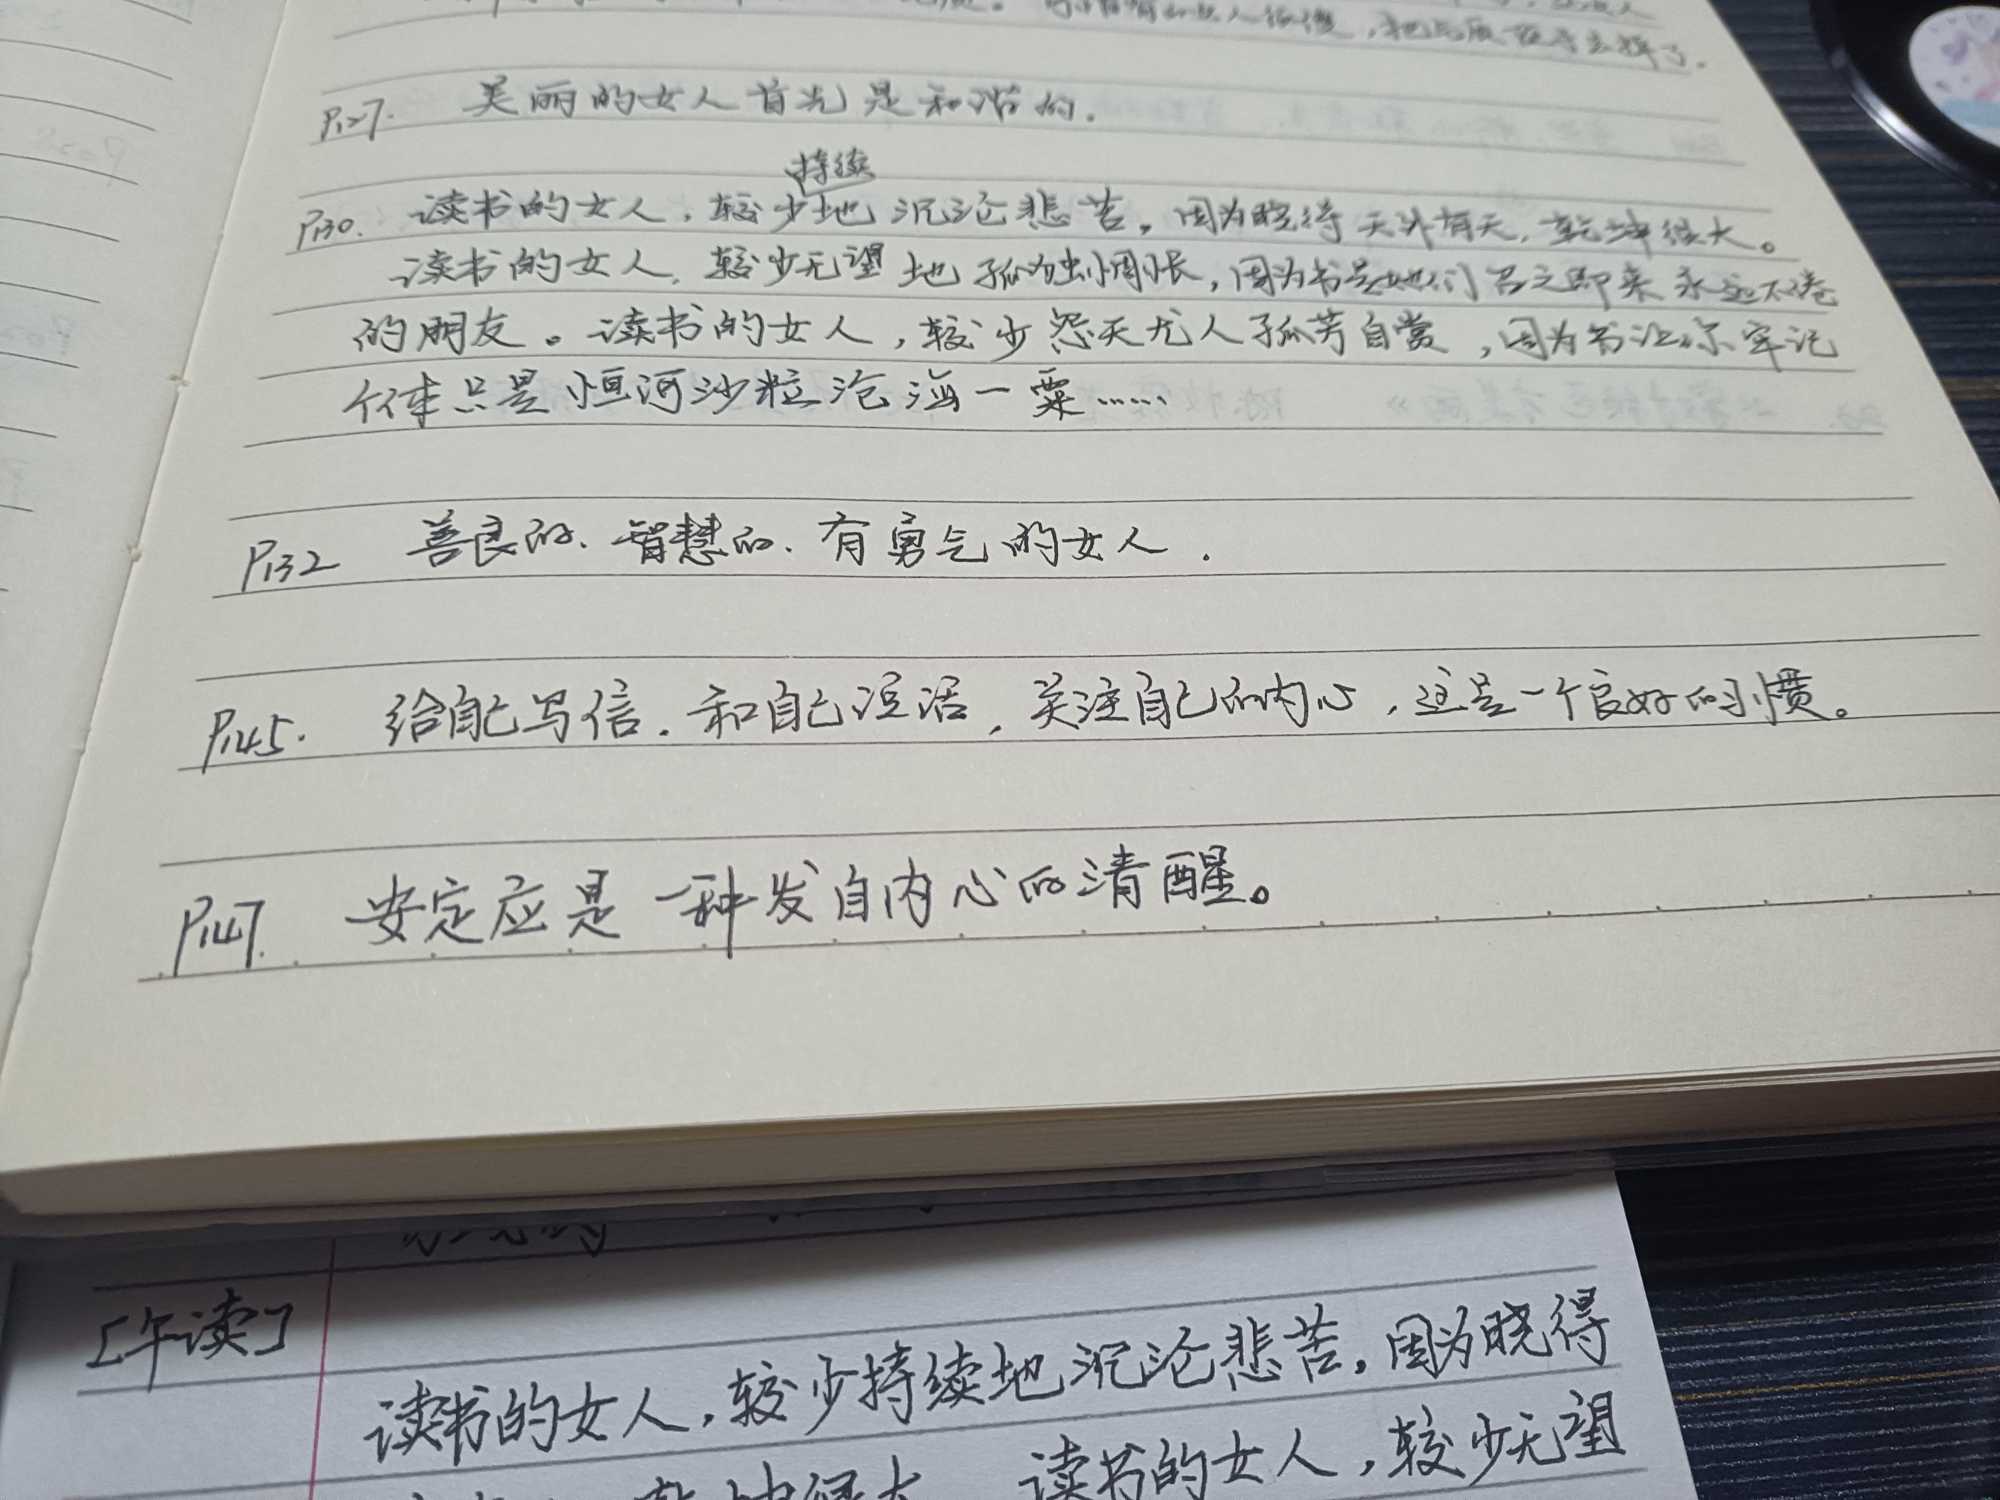 P127. 美丽的女人首先是和谐的.
持续
P130. 读书的女人,较少地沉沦悲苦。因为晓得天外有天,乾坤很大。
读书的女人,较少无望地孤独惆怅,因为书是她们召之即来永远不倦
的朋友。读书的女人,较少怨天尤人孤芳自赏,因为书让你牢记
个体只是恒河沙粒沧海一粟……
P132 善良的.智慧的.有勇气的女人.
P145. 给自己写信.和自己说话,关注自己的内心,这是一个良好的习惯。
P147. 安定应是一种发自内心的清醒。
[午读]
读书的女人,较少持续地沉沦悲苦。因为晓得
读书的女人,较少无望